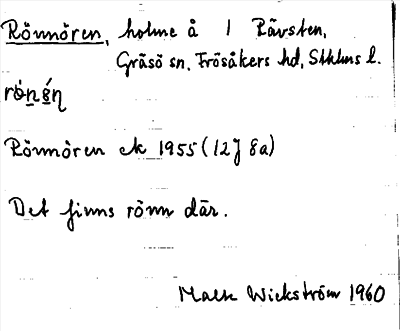 Rönnören, holme å 1 Rävsten,
Gräsö sn, Frösåkers hd, Sthlms l.
Rönnören ek 1955 (12J 8a)
Det finns rönn där.
Wickström 1960